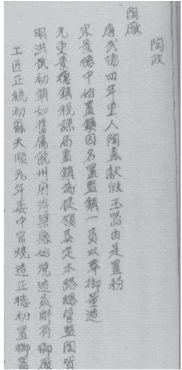 陶政
陶厰
唐武德四年里人陶義獻假玉器由是置務
宋景德中始置鎮因名置監鎮一員以奉御董造
元更景德鎮稅課局監鎮為提領泰定本路總管監陶皆
明洪武初鎮如舊屬饒州府浮梁縣始燒造歲解有御厰
工匠正統初罷天順元年委中官燒造正德初置御器